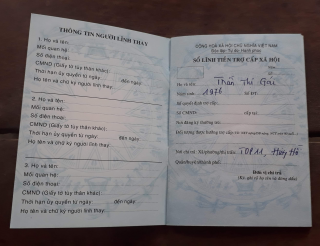 THÔNG TIN NGƯỜI LĨNH THAY
1. Họ và tên:
Mối quan hệ:
Số điện thoại:
CMND (Giấy tờ tùy thân khác):
Thời hạn ủy quyền từ ngày đến ngày
Họ tên và chữ ký người lĩnh thay:
2. Họ và tên:
Mối quan hệ:
Số điện thoại:
CMND (Giấy tờ tùy thân khác):
Thời hạn ủy quyền từ ngày đến ngày
Họ tên và chữ ký người lĩnh thay:
3. Họ và tên:
Mối quan hệ:
Số điện thoại:
CMND (Giấy tờ tùy thân khác):
Thời hạn ủy quyền từ ngày đến ngày
Họ tên và chữ ký người lĩnh thay:
CỘNG HÒA XÃ HỘI CHỦ NGHĨA VIỆT NAM
Độc lập - Tự do - Hạnh phúc
SỔ LĨNH TIỀN TRỢ CẤP XÃ HỘI
Họ và tên: Trần Thị
Năm sinh: 1976 Số ĐT:
Số quyết định trợ cấp:
Số CMND: cấp tại
Nơi đăng ký thường trú:
Nơi chi trả: TDP11,
Đơn vị chi trả